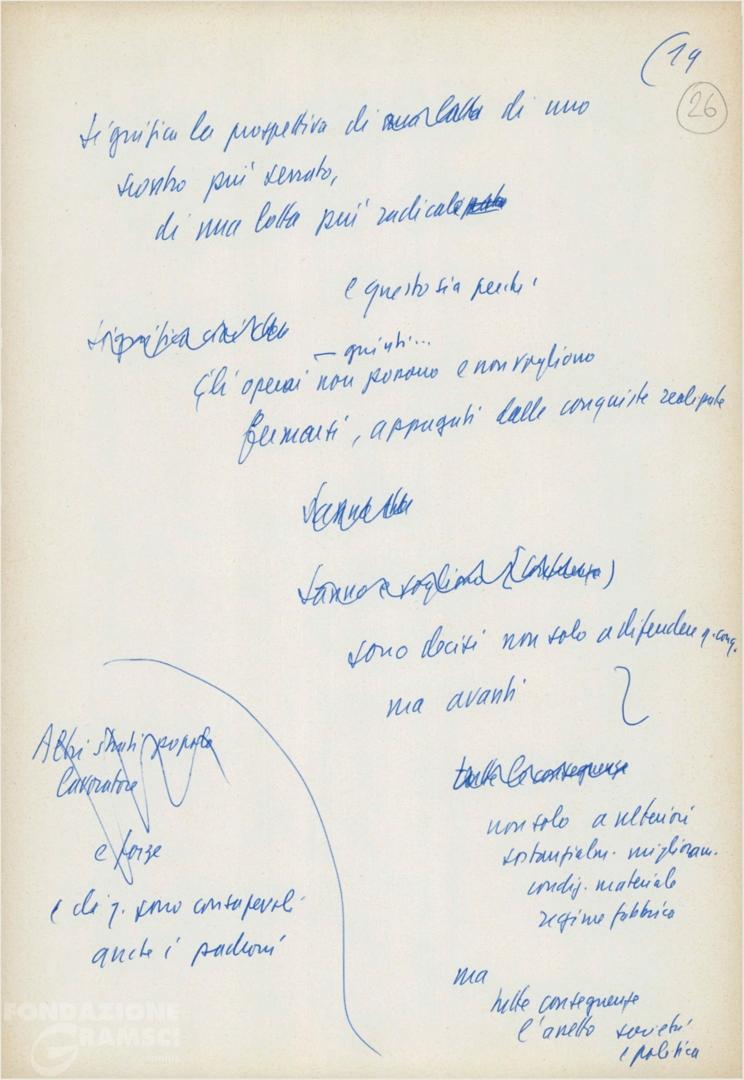 (19
26
significa la prospettiva di una lotta di uno
scontro più serrato,
di una lotta più radicale
e questo sia perché
significa
— quinti...
Gli operai non possono e non vogliono
fermarsi, appagati dalle conquiste realizzate
sanno
sanno e vogliono
sono decisi non solo a difendere q. conq.
ma avanti
Altri strati popola
lavoratore
e forze
e di q. sono consapevoli
anche i padroni
tutte le conseguenze
non solo a ulteriori
sostanzialm. miglioram.
condiz. materiale
regime fabbrica
ma
tutte conseguenze
l'assetto società
e politica
FONDAZIONE
GRAMSCI